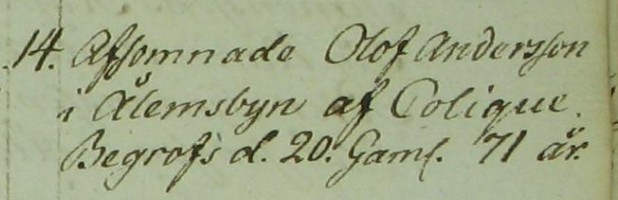 14. Afsomnade Olof Andersson
i Ålemsbyn af Colique.
Begrofs d. 20. Gaml. 71 år.